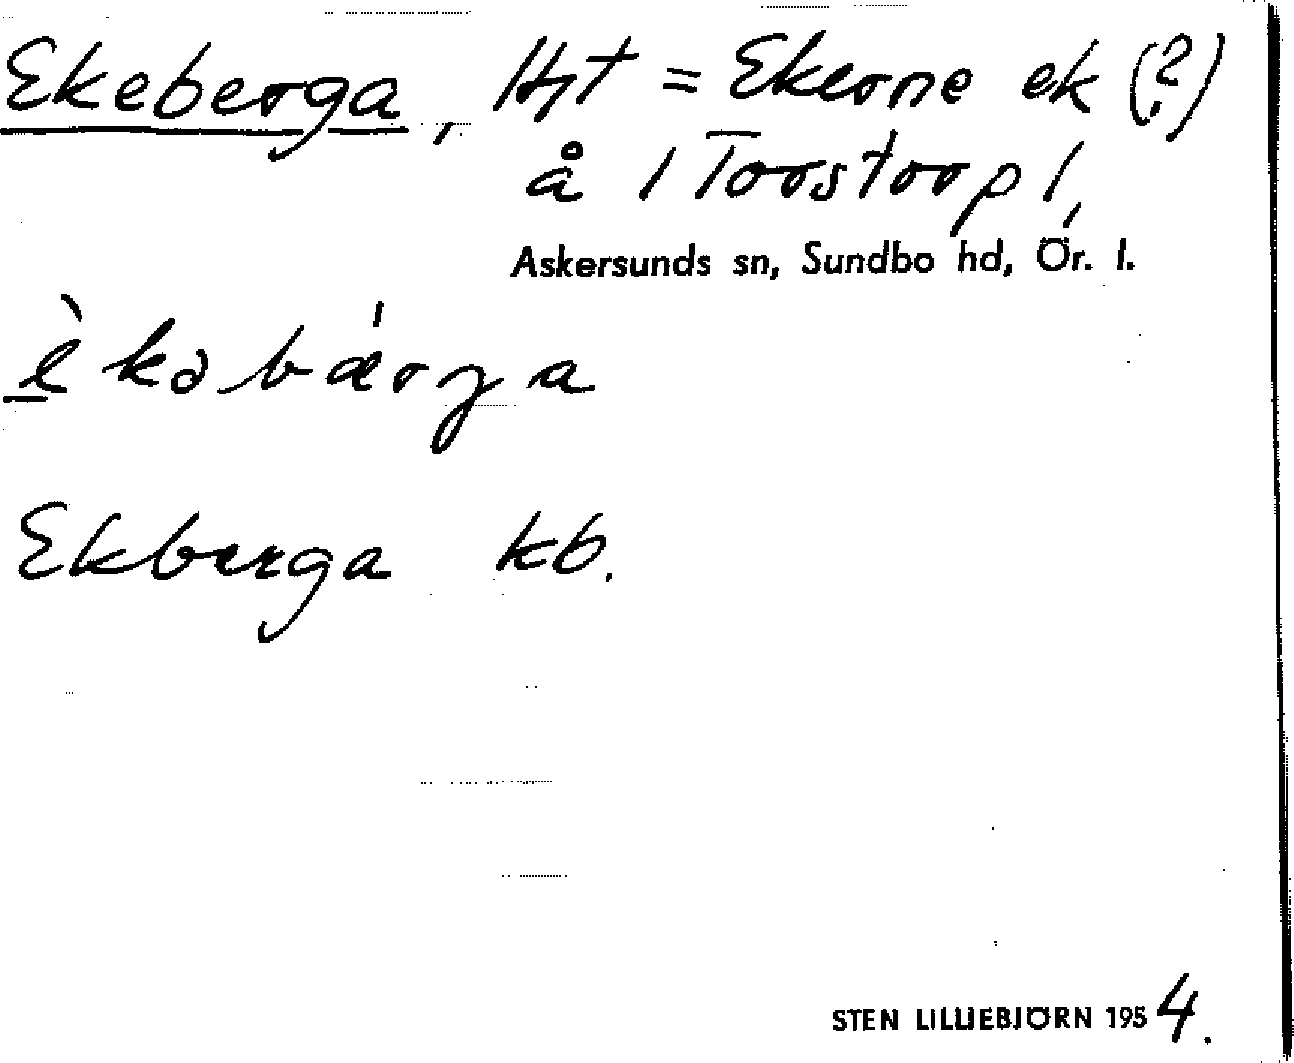 Ekeberga, Hpt = Ekerne ek (?)
å 1 Torstorp 1,
Askersunds sn, Sundbo hd, Ör. l.
èkəbǽrga
Ekberga kb.
STEN LILLIEBJÖRN 1954.